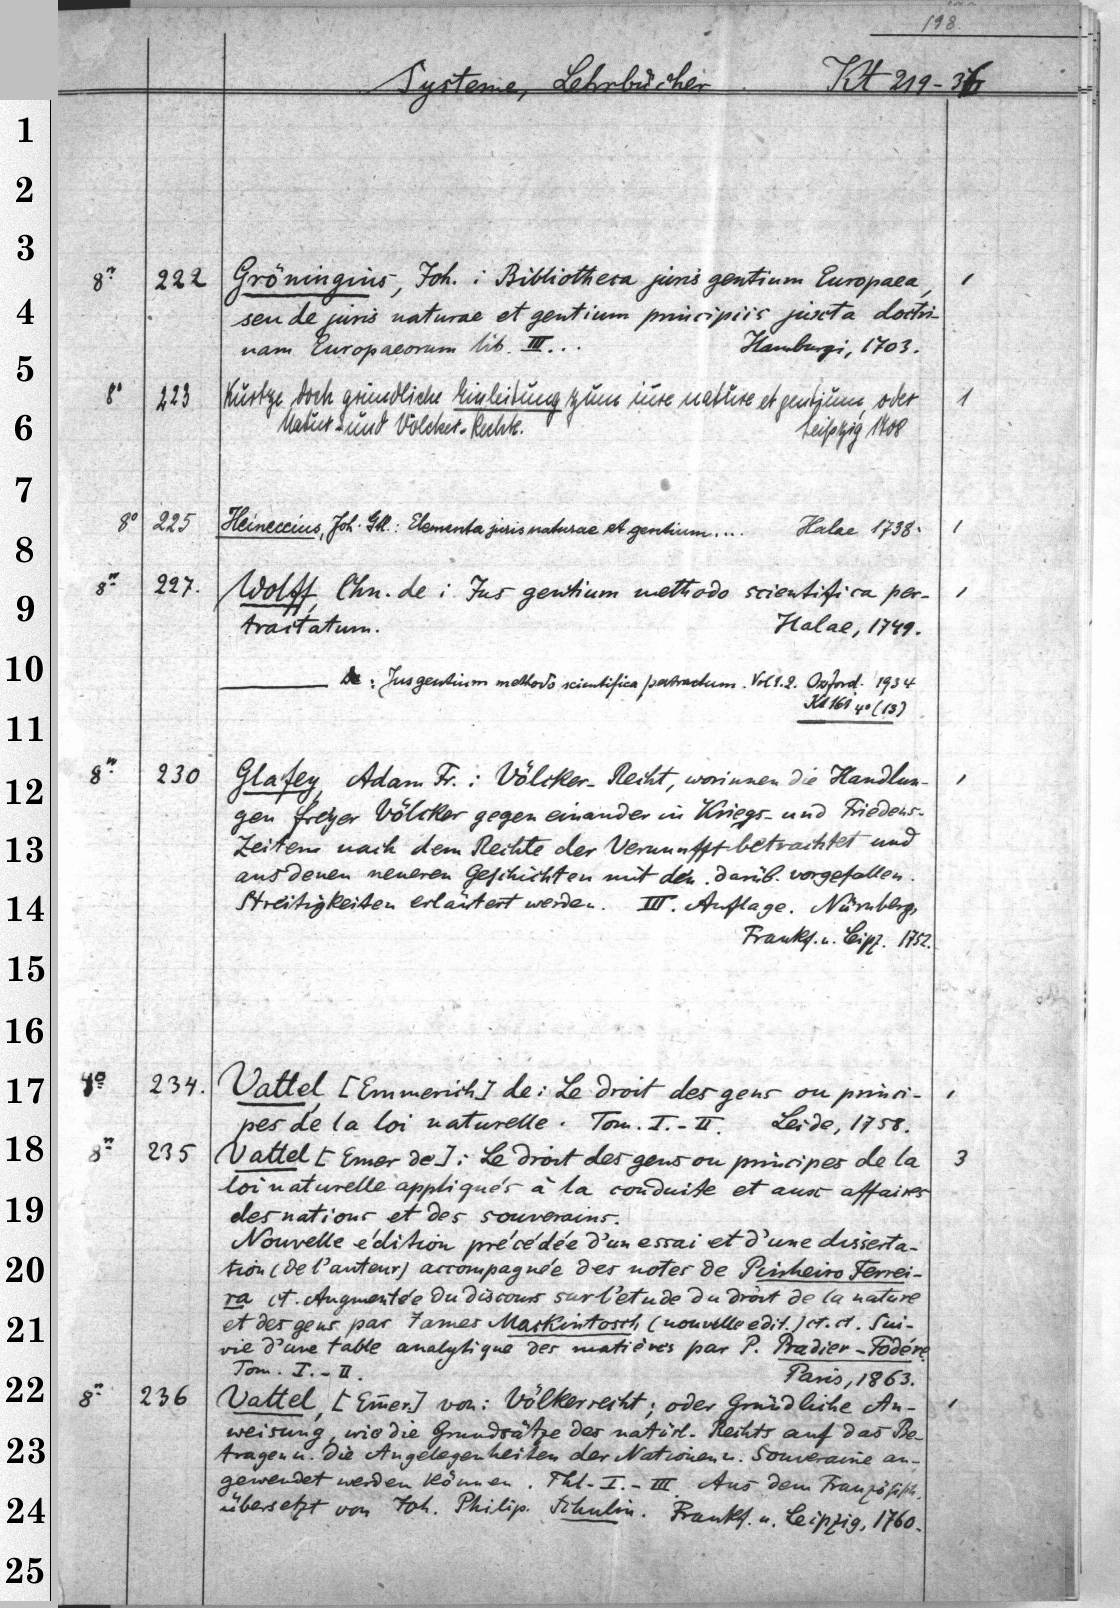 198
Systeme, Lehrbücher Kt 219-36
1
2
3
8° 222 Gröningius, Joh. : Bibliotheca juris gentium Europaea, 1
4
seu de juris naturae et gentium principiis juxta doctri-
nam Europaeorum lib. III... Hamburgi, 1703.
5
8° 223 Kurtze doch gründliche Einleitung zum iure nature et gentium, oder 1
6
Natur- und Völcker-Rechte. Leipzig 1708
7
8° 225 Heineccius, Joh. Gtl.: Elementa juris naturae et gentium.... Halae 1738. 1
8
8° 227. Wolff, Chn. de : Jus gentium methodo scientifica per- 1
9
tractatum. Halae, 1749.
10
De : Jus gentium methodo scientifica pertractum. Vol 1.2. Oxford. 1934
Kd 161 4° (13)
11
8° 230 Glafey, Adam Fr. : Völcker-Recht, worinnen die Handlun- 1
12
gen freyer Völcker gegen einander in Kriegs- und Friedens-
13
Zeiten nach dem Rechte der Vernunfft betrachtet und
aus denen neueren Geschichten mit den darüb. vorgefallen.
14
Streitigkeiten erläutert werden. III. Auflage. Nürnberg,
Frankf. u. Leipz. 1752.
15
16
17
4° 234. Vattel, [Emmerich] de : Le droit des gens ou princi- 1
pes de la loi naturelle. Tom. I.-II. Leide, 1758.
18
8° 235 Vattel [Emer de] : Le droit des gens ou principes de la 3
loi naturelle appliqués à la conduite et aux affaires
19
des nations et des souverains.
Nouvelle édition précédée d'un essai et d'une disserta-
20
tion (de l'auteur) accompagnée des notes de Pinheiro Ferrei-
ra et. Augmentée du discours sur l'etude du droit de la nature
21
et des gens par James Mackintosch (nouvelle edit.) ct. ct. Sui-
vie d'une table analytique des matières par P. Pradier-Fodéré
Tom. I.-II. Paris, 1863.
22
8° 236 Vattel, [Emer.] von : Völkerrecht; oder Gründliche An- 1
weisung, wie die Grundsätze des natürl. Rechts auf das Be-
23
tragen u. die Angelegenheiten der Nationen u. Souveraine an-
gewendet werden können. Thl. I.-III. Aus dem Französisch.
24
übersetzt von Joh. Philip. Schulin. Frankf. u. Leipzig, 1760.
25